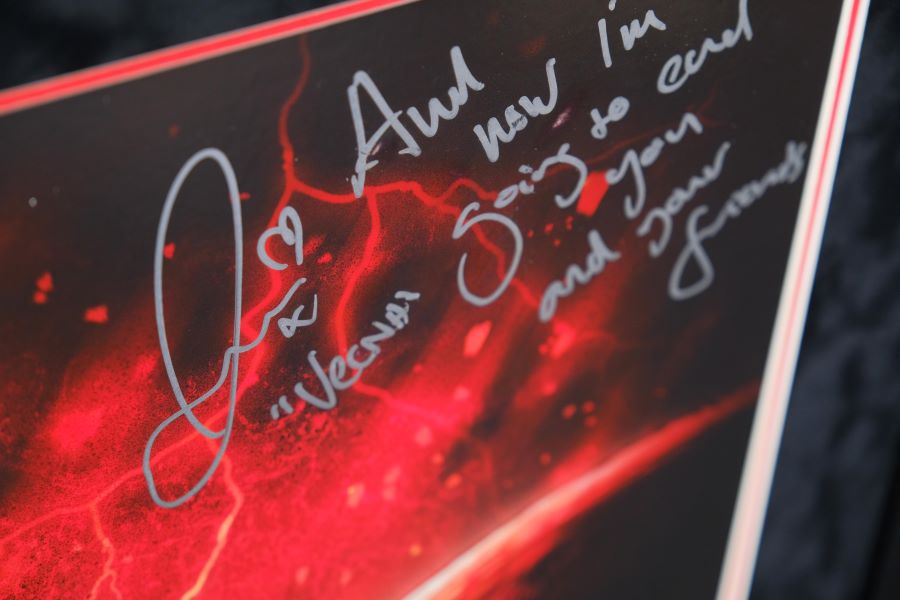 And
now I'm
going to end
you
and your
friends
"VECNA"